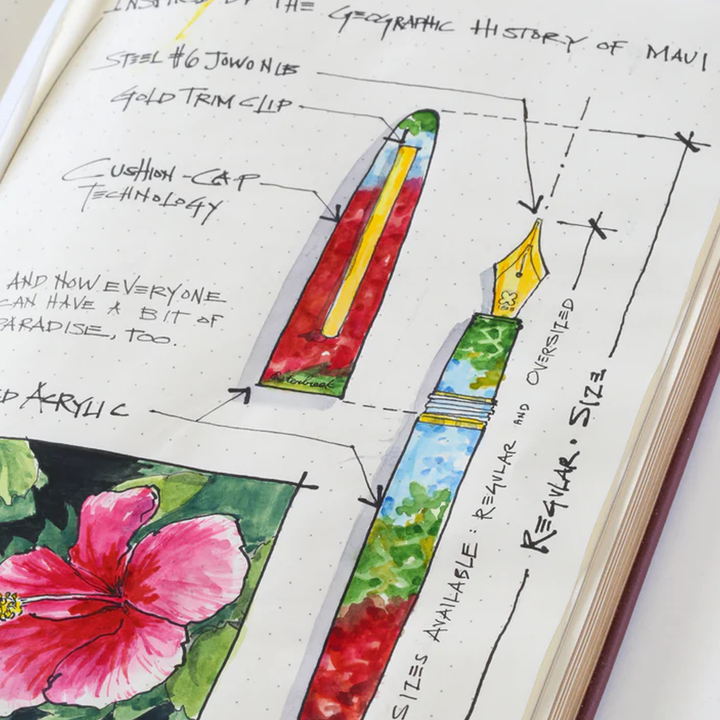 INSPIRED BY THE GEOGRAPHIC HISTORY OF MAUI
STEEL #6 JOWO NIB
GOLD TRIM CLIP
CUSHION-CAP
TECHNOLOGY
AND NOW EVERYONE
CAN HAVE A BIT OF
PARADISE, TOO.
ED ACRYLIC
Esterbrook
SIZES AVAILABLE : REGULAR AND OVERSIZED
REGULAR · SIZE